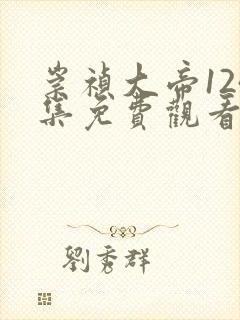 崇禎大帝12
集免費觀看
劉秀群